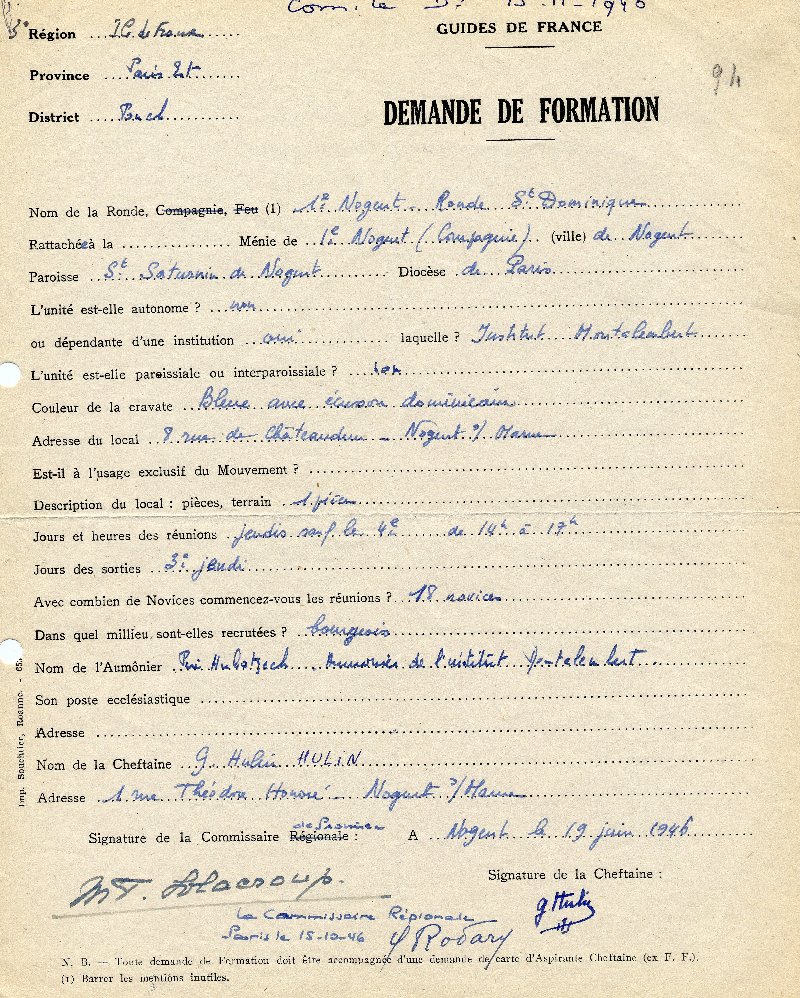 15-11-1946
Région I. de France
GUIDES DE FRANCE
Province Paris Est
94
District
DEMANDE DE FORMATION
Nom de la Ronde, Compagnie, Feu (1) 1e Nogent - Ronde St Dominique
Rattachéeà la Ménie de 1e Nogent (Compagnie) (ville) de Nogent
Paroisse St Saturnin de Nogent Diocèse de Paris
L'unité est-elle autonome ? non
ou dépendante d'une institution oui laquelle ? Institut Montalembert
L'unité est-elle paroissiale ou interparoissiale ? non
Couleur de la cravate Bleue avec écusson dominicain
Adresse du local 8 rue de Châteaudun - Nogent s/ Marne
Est-il à l'usage exclusif du Mouvement ?
Description du local : pièces, terrain 1 pièce
Jours et heures des réunions jeudis sauf le 4e de 14h à 17h
Jours des sorties 3e jeudi
Avec combien de Novices commencez-vous les réunions ? 18 novices
Dans quel millieu sont-elles recrutées ? bourgeois
Nom de l'Aumônier de l'institut Montalembert
Son poste ecclésiastique
Adresse
Nom de la Cheftaine G. Hulin HULIN
Adresse 1 rue Théodore Honoré - Nogent s/Marne
de Province
Signature de la Commissaire Régionale : A Nogent le 19 juin 1946
Signature de la Cheftaine :
MT.
g Hulin
La Commissaire Régionale
Paris le 15-10-46 Rodary
N. B. — Toute demande de Formation doit être accompagnée d'une demande de carte d'Aspirante Cheftaine (ex F. F.).
(1) Barrer les mentions inutiles.
Imp. Souchier, Roanne. - 65.